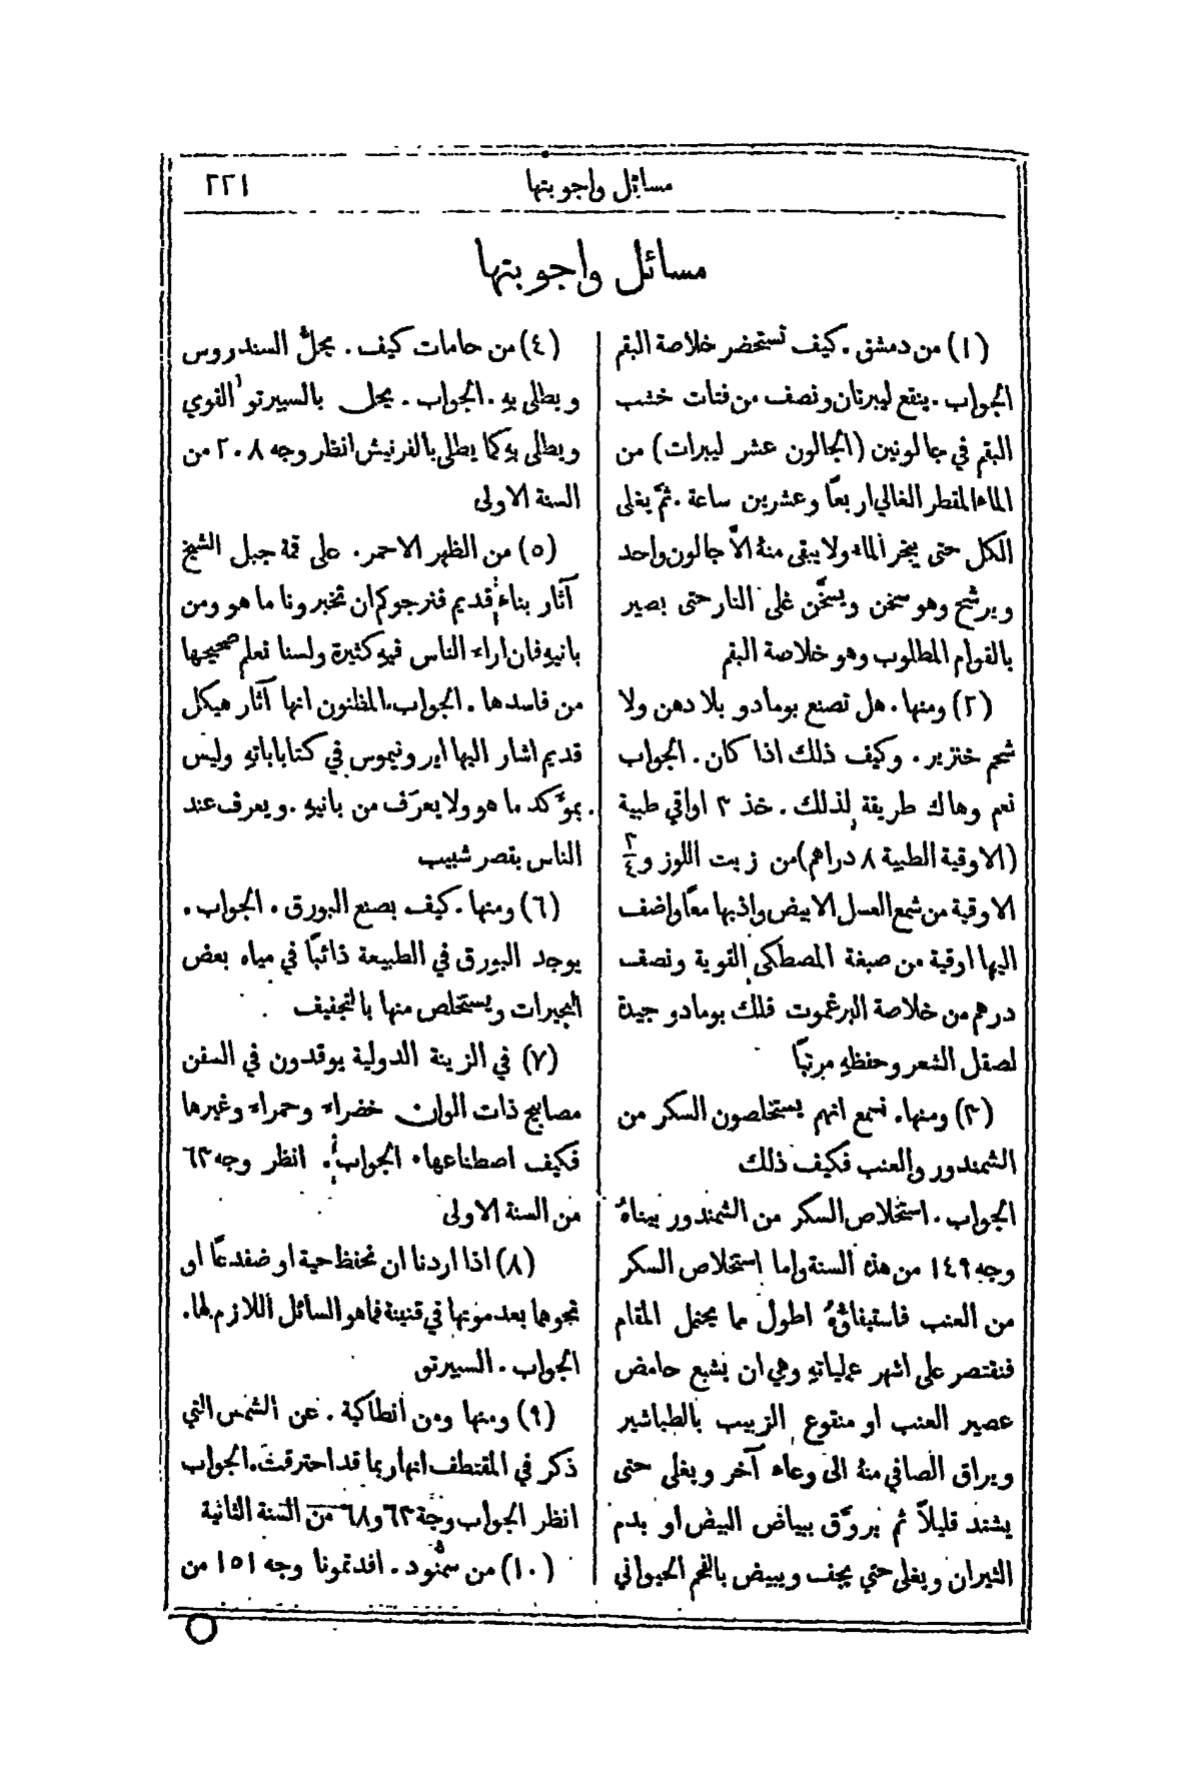 مسائل واجوبتها
٢٢١
مسائل واجوبتها
(١) من دمشق. كيف تستحضر خلاصة البقم
الجواب. ينقع ليبرتان ونصف من فتات خشب
البقم في جالونين (الجالون عشر ليبرات) من
الماء المقطر الغالي اربعًا وعشرين ساعة. ثمَّ يغلى
الكل حتى يتبخر الماء ولا يبقى منهُ الاَّ جالون واحد
ويرشح وهو سخن ويسخَّن على النار حتى يصير
بالقوام المطلوب وهو خلاصة البقم
(٢) ومنها. هل تصنع بومادو بلا دهن ولا
شحم خنزير. وكيف ذلك اذا كان. الجواب
نعم وهاك طريقة لذلك. خذ ٣ اواقي طبية
(الاوقية الطبية ٨ دراهم) من زيت اللوز و ٣/٤
الاوقية من شمع العسل الابيض واذبها معًا واضف
اليها اوقية من صبغة المصطكى القوية ونصف
درهم من خلاصة البرغموت فلك بومادو جيدة
لصقل الشعر وحفظهِ مرتبًا
(٣) ومنها. نسمع انهم يستخلصون السكر من
الشمندور والعنب فكيف ذلك
الجواب. استخلاص السكر من الشمندور بيناهُ
وجه ١٤٩ من هذه السنة واما استخلاص السكر
من العنب فاستيفاؤهُ اطول مما يحتمل المقام
فنقتصر على اشهر عملياتهِ وهي ان يشبع حامض
عصير العنب او منقوع الزبيب بالطباشير
ويراق الصافي منهُ الى وعاء آخر ويغلى حتى
يشتد قليلاً ثم يروَّق ببياض البيض او بدم
الثيران ويغلى حتى يجف ويبيض بالفحم الحيواني
(٤) من حامات كيف. يحلُّ السندروس
ويطلى بهِ. الجواب. يحل بالسبيرتو القوي
ويطلى بهِ كما يطلى بالفرنيش انظر وجه ٢٠٨ من
السنة الاولى
(٥) من الظهر الاحمر. على قمة جبل الشيخ
آثار بناء قديم فنرجوكم ان تخبرونا ما هو ومن
بانيهِ فان اراء الناس فيهِ كثيرة ولسنا نعلم صحيحها
من فاسدها. الجواب. المظنون انها آثار هيكل
قديم اشار اليها ايرونيموس في كتاباباتهِ وليس
بموَّكد ما هو ولا يعرَف من بانيهِ. ويعرف عند
الناس بقصر شبيب
(٦) ومنها. كيف يصنع البورق. الجواب.
يوجد البورق في الطبيعة ذائبًا في مياه بعض
البحيرات ويستخلص منها بالتجفيف
(٧) في الزينة الدولية يوقدون في السفن
مصابيح ذات الوان خضراء وحمراء وغيرها
فكيف اصطناعها. الجواب. انظر وجه ٦٣
من السنة الاولى
(٨) اذا اردنا ان نحفظ حية او ضفدعًا او
نحوها بعد موتها في قنينة فما هو السائل اللازم لها.
الجواب. السبيرتو
(٩) ومنها ومن أنطاكية. عن الشمس التي
ذكر في المقتطف انها ربما قد احترقت. الجواب
انظر الجواب وجه ٦٣ و ٦٨ من السنة الثانية
(١٠) من سمنُّود. افدتمونا وجه ١٥١ من